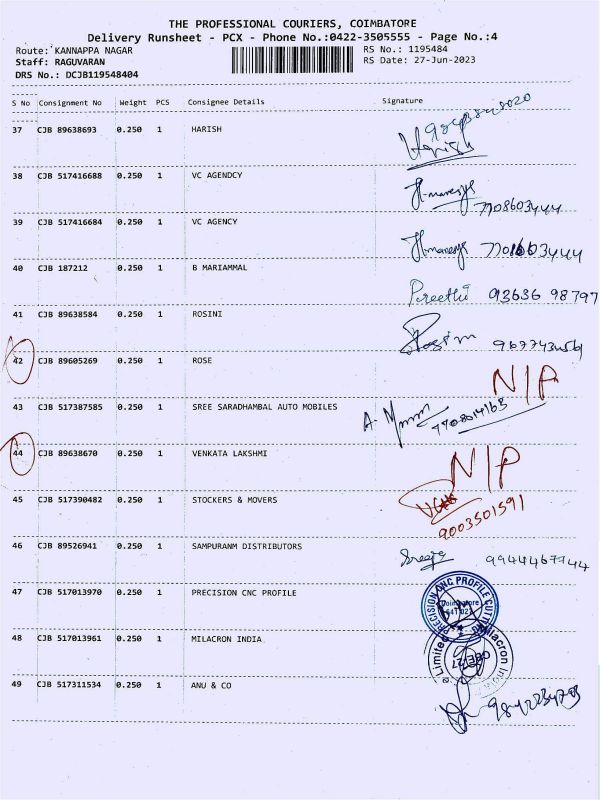 THE PROFESSIONAL COURIERS, COIMBATORE
Delivery Runsheet - PCX - Phone No.:0422-3505555 - Page No.:4
Route: KANNAPPA NAGAR RS No.: 1195484
Staff: RAGUVARAN RS Date: 27-Jun-2023
DRS No.: DCJB119548404
S No Consignment No Weight PCS Consignee Details Signature
37 CJB 89638693 0.250 1 HARISH
Harish
38 CJB 517416688 0.250 1 VC AGENDCY
7708603444
39 CJB 517416684 0.250 1 VC AGENCY
40 CJB 187212 0.250 1 B MARIAMMAL
Preethi 93636 98797
41 CJB 89638584 0.250 1 ROSINI
42 CJB 89605269 0.250 1 ROSE
N/A
43 CJB 517387585 0.250 1 SREE SARADHAMBAL AUTO MOBILES
7708014163
44 CJB 89638670 0.250 1 VENKATA LAKSHMI
N/P
45 CJB 517390482 0.250 1 STOCKERS & MOVERS
9003501591
46 CJB 89526941 0.250 1 SAMPURANM DISTRIBUTORS
9944467944
47 CJB 517013970 0.250 1 PRECISION CNC PROFILE
PRECISION CNC PROFILE CUTTING
Coimbatore
48 CJB 517013961 0.250 1 MILACRON INDIA
49 CJB 517311534 0.250 1 ANU & CO